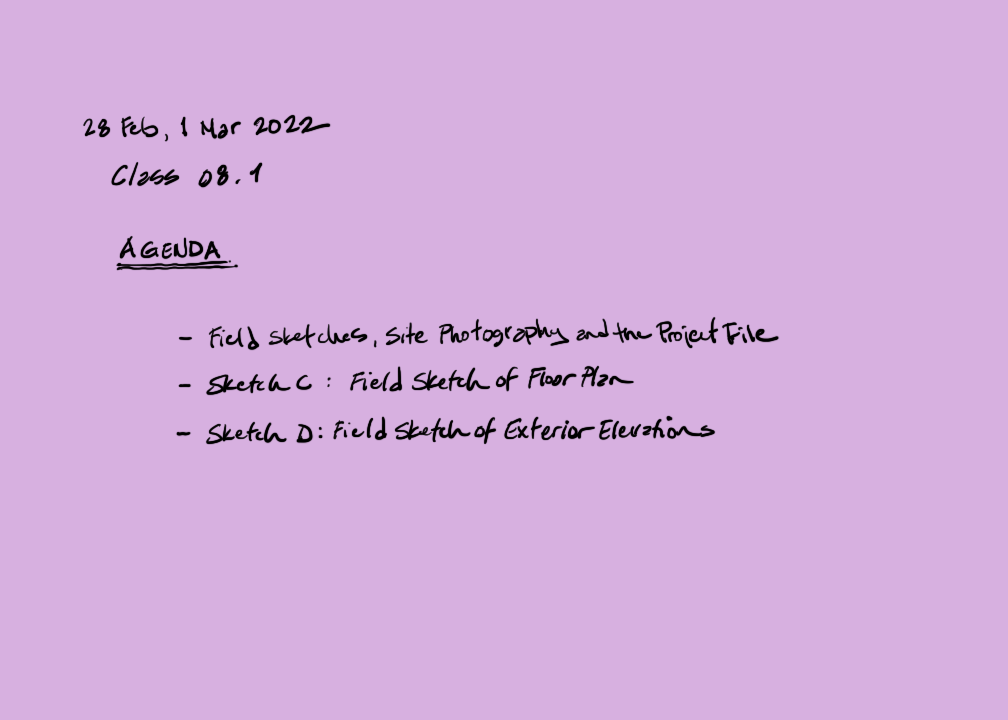 28 Feb, 1 Mar 2022
Class 08.1
AGENDA
- Field Sketches, Site Photography and the Project File
- Sketch C : Field Sketch of Floor Plan
- Sketch D: Field Sketch of Exterior Elevations